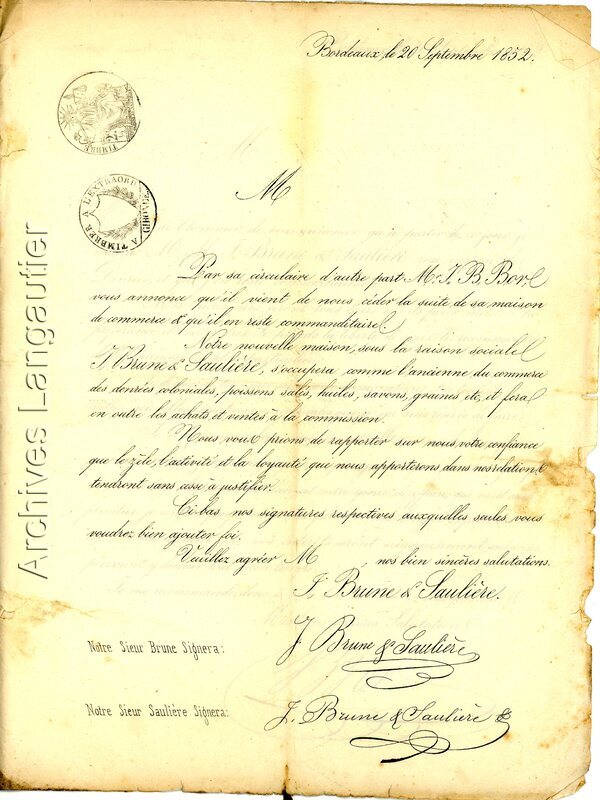 Bordeaux, le 20 Septembre 1852.
TIMBRE
TIMBRE A L'EXTRAORD.
GIRONDE
M
Par sa circulaire d'autre part M. J. B. Bory
vous annonce qu'il vient de nous céder la suite de sa maison
de commerce & qu'il en reste commanditaire.
Notre nouvelle maison, sous la raison sociale
J. Brune & Saulière, s'occupera comme l'ancienne du commerce
des denrées coloniales, poissons salés, huiles, savons, graines etc, et fera
en outre les achats et ventes à la commission.
Nous vous prions de rapporter sur nous votre confiance
que le zèle, l'activité et la loyauté que nous apporterons dans nos relations
tendront sans cesse à justifier.
Ci-bas nos signatures respectives auxquelles seules vous
voudrez bien ajouter foi.
Veuillez agréer M , nos bien sincères salutations.
J. Brune & Saulière.
Notre Sieur Brune Signera:
J Brune & Saulière
Notre Sieur Saulière Signera:
J. Brune & Saulière
Archives Langautier